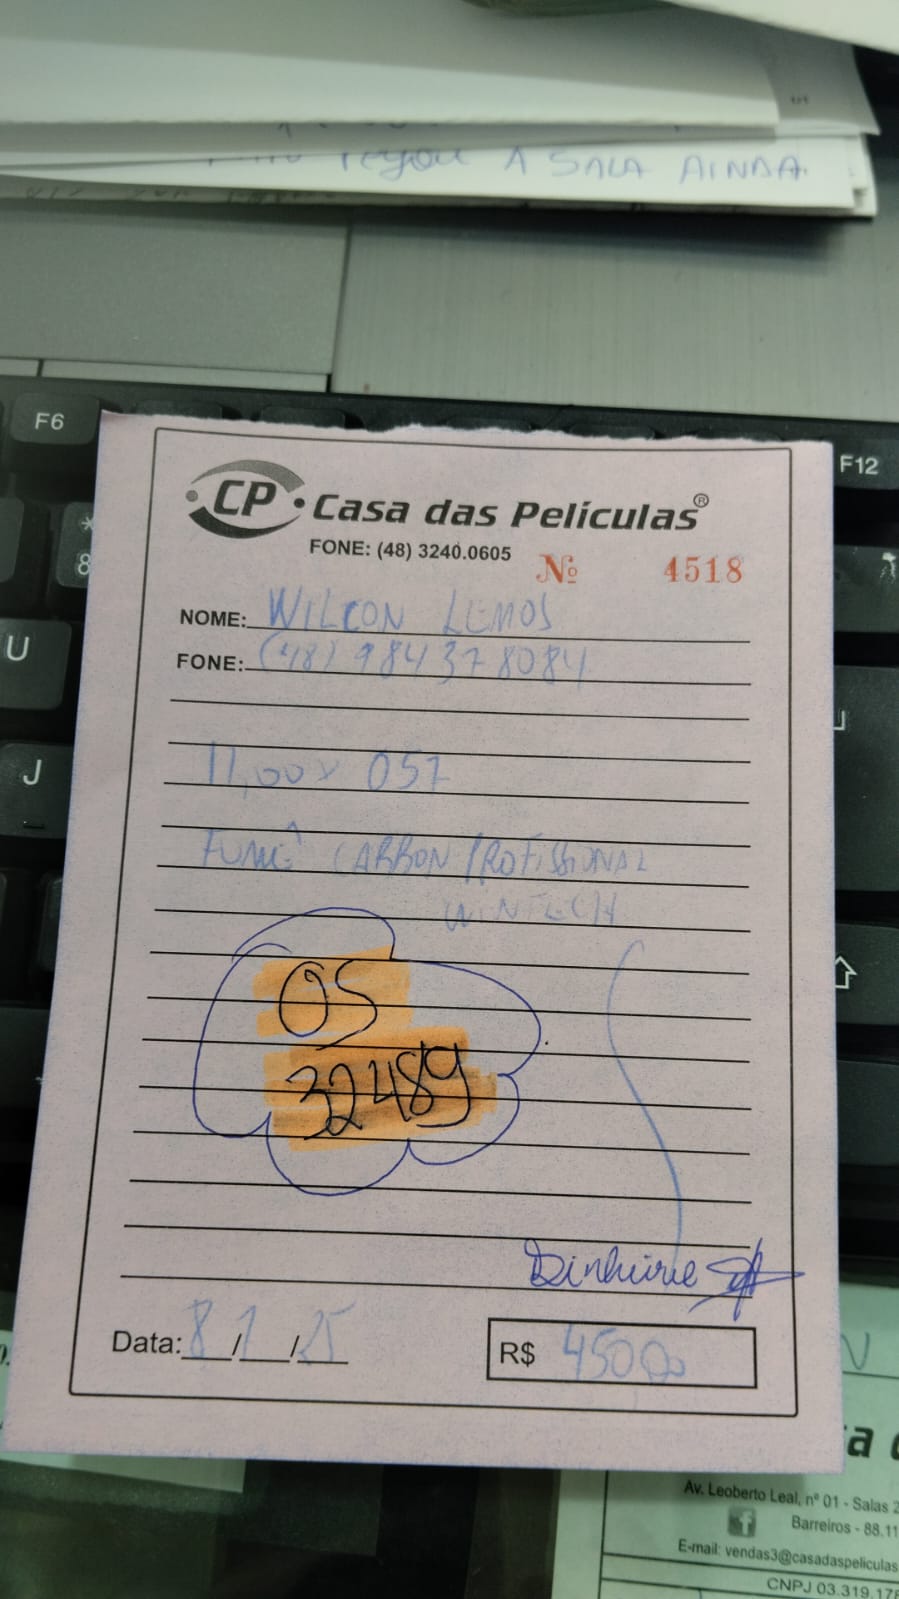 regou A SALA AINDA
F6
F12
*
8
U
J
CP Casa das Películas®
FONE: (48) 3240.0605
Nº 4518
NOME: WILCON LEMOS
FONE: (48) 984378084
11,00 x 057
FUMÊ CARBON PROFISSIONAL
WINTECH
OS
32489
Dinheiro
Data: 8/1/25
R$ 450,00
Av. Leoberto Leal, nº 01 - Salas 2
Barreiros - 88.11
E-mail: vendas3@casadaspeliculas
CNPJ 03.319.178